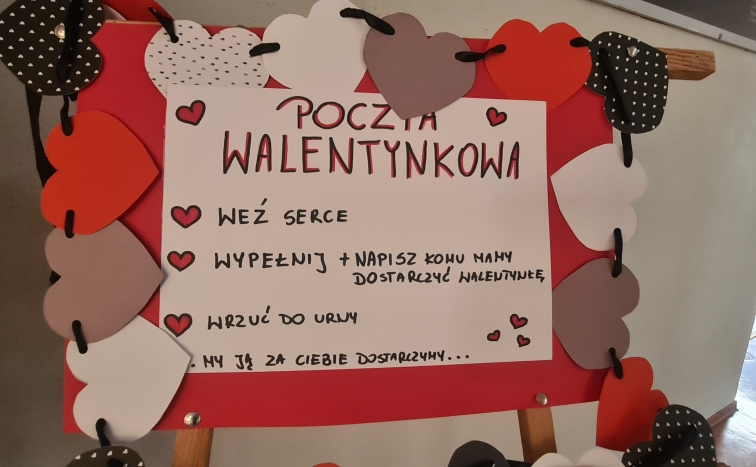 POCZTA
WALENTYNKOWA
WEŹ SERCE
WYPEŁNIJ + NAPISZ KOMU MAMY
DOSTARCZYĆ WALENTYNKĘ
WRZUĆ DO URNY
. MY JĄ ZA CIEBIE DOSTARCZYMY...